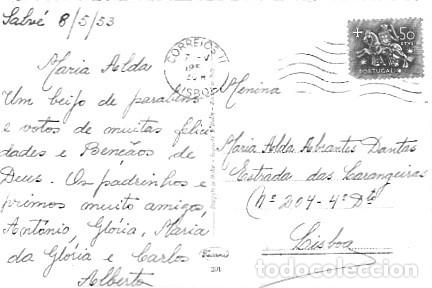 Salvé 8/5/53
Maria Alda
Um beijo de parabens
e votos de muitas felici
dades e Bençãos de
Deus. Os padrinhos e
primos muito amigos,
António, Glória, Maria
da Glória e Carlos
Alberto
201
CORREIOS
LISBOA
50
CTVS
PORTUGAL
Menina
Maria Alda Abrantes Dantas
Estrada das Larangeiras
(Nº 204-4º Dtº
Lisboa
todocoleccion.net